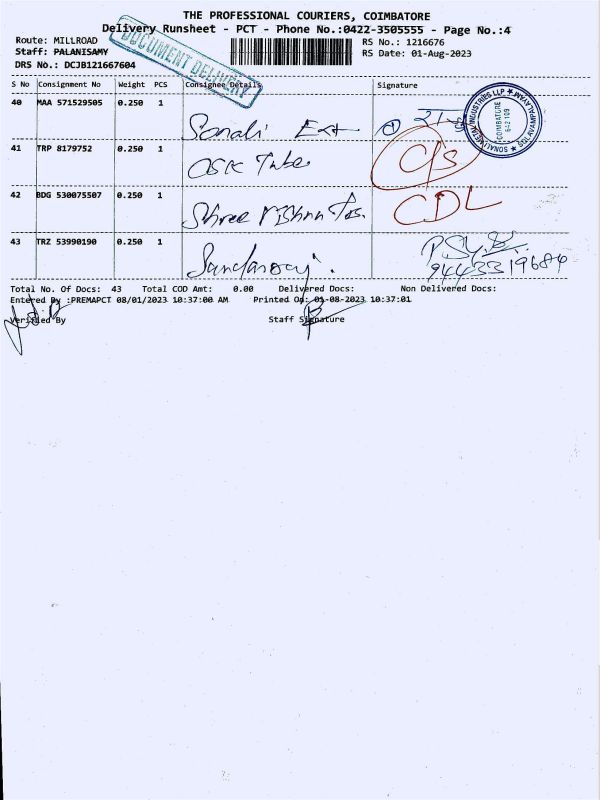 THE PROFESSIONAL COURIERS, COIMBATORE
Delivery Runsheet - PCT - Phone No.:0422-3505555 - Page No.:4
Route: MILLROAD
RS No.: 1216676
Staff: PALANISAMY
RS Date: 01-Aug-2023
DRS No.: DCJB121667604
DOCUMENT DELIVERY
S No Consignment No Weight PCS Consignee Details Signature
40 MAA 571529505 0.250 1
Sonali Ext
COIMBATORE
41 TRP 8179752 0.250 1
ask Tube
C/s
42 BDG 530075507 0.250 1
Shree Krishna
CDL
43 TRZ 53990190 0.250 1
Total No. Of Docs: 43 Total COD Amt: 0.00 Delivered Docs: Non Delivered Docs:
Entered By :PREMAPCT 08/01/2023 10:37:00 AM Printed On: 01-08-2023 10:37:01
Verified By Staff Signature